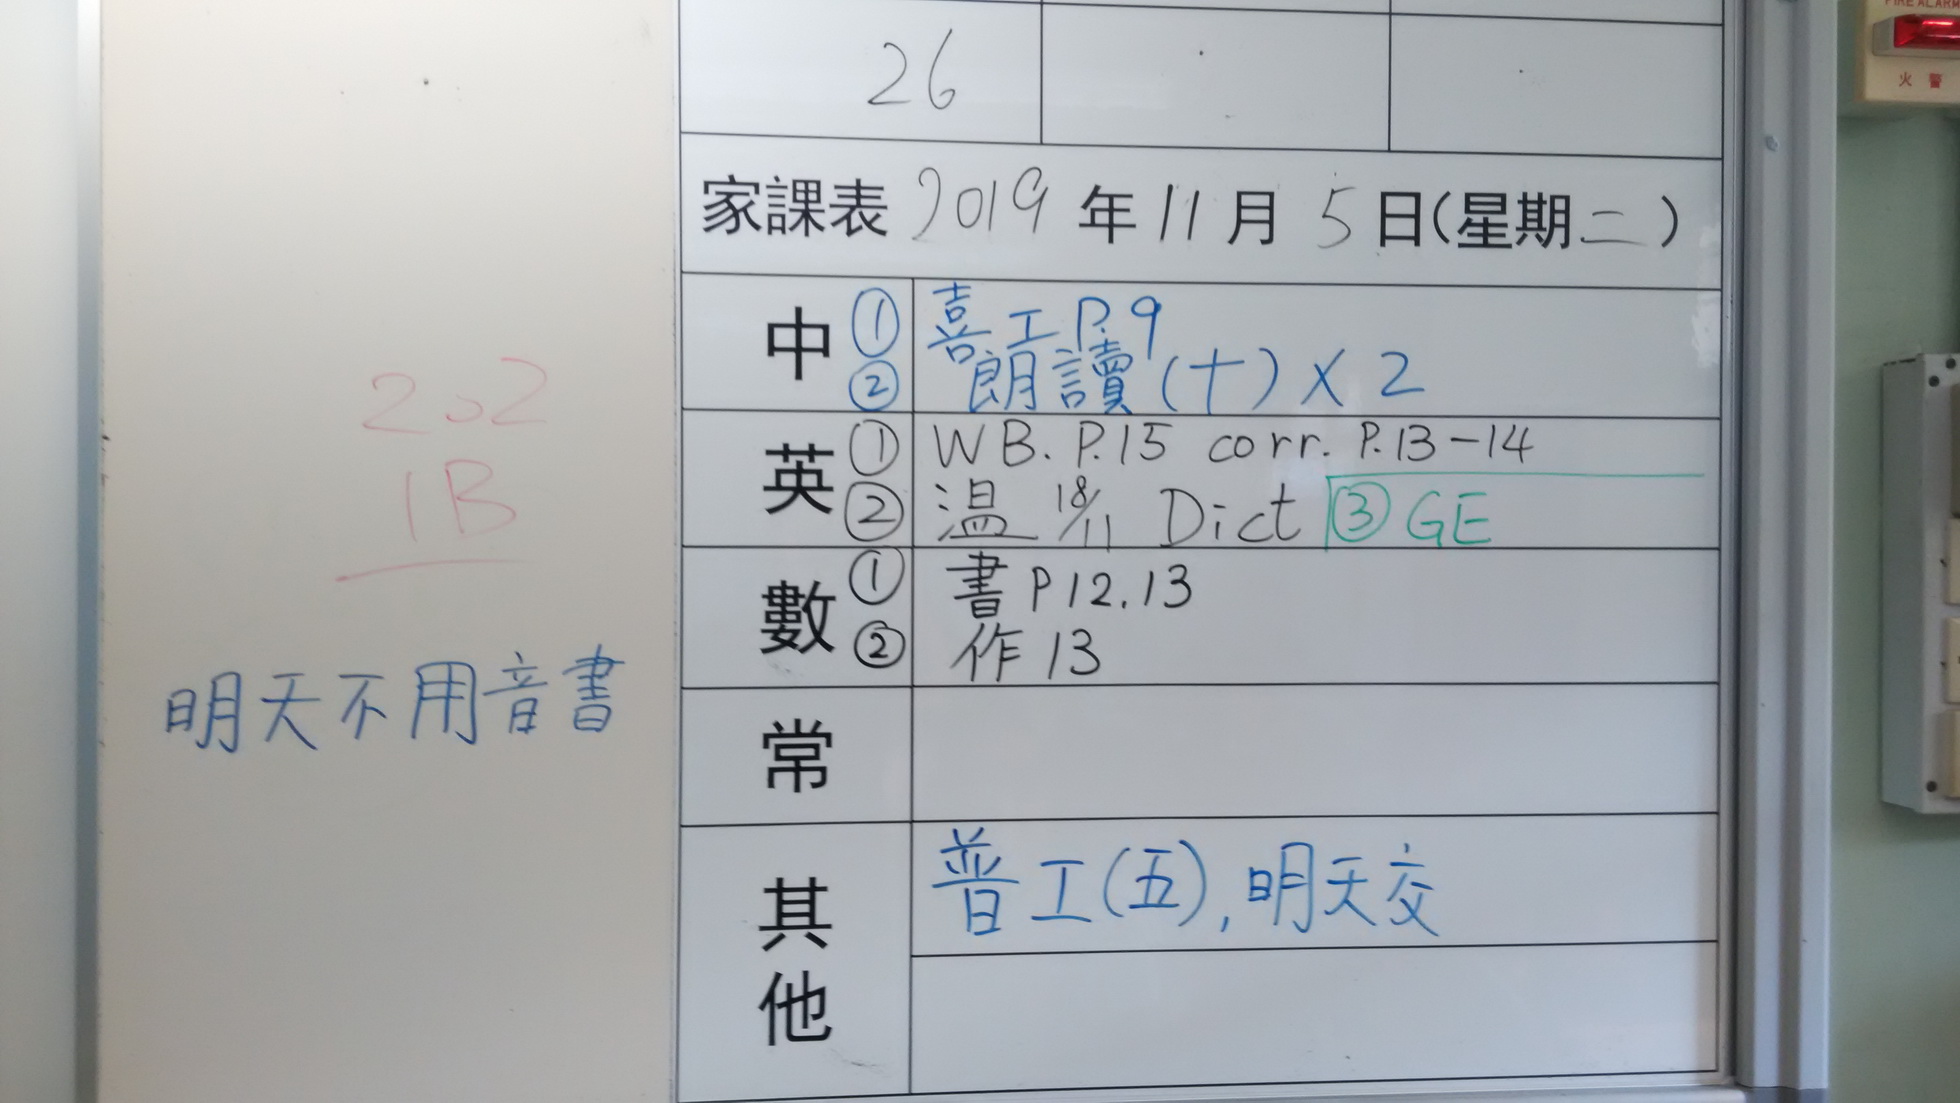 FIRE ALARM
火警
26
家課表 2019 年 11 月 5 日(星期二)
中 ① 喜工 P.9
② 朗讀 (十) X 2
英 ① WB. P.15 corr. P.13-14
② 温 18/11 Dict ③ GE
數 ① 書 P 12.13
② 作 13
常
其他
普工(五), 明天交
202
1B
明天不用音書